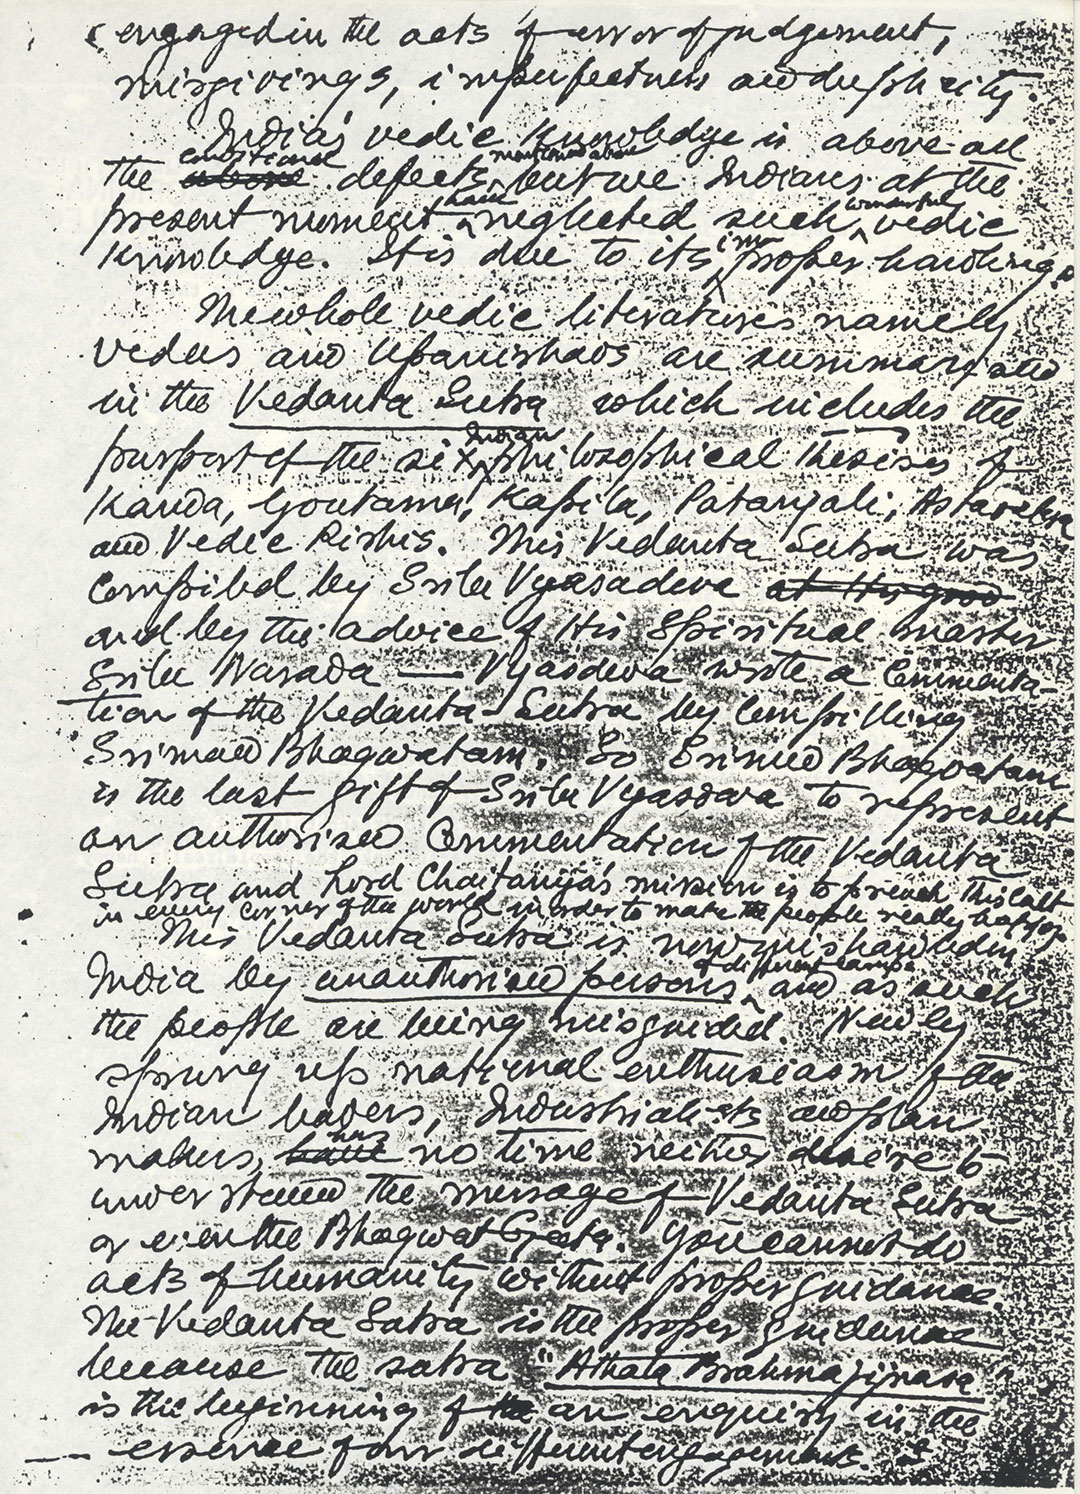 engaged in the acts of error of judgement,
misgivings, imperfectness and duplicity.
India's vedic knowledge is above all
the conditional defects mentioned above, but we Indians at the
present moment have neglected such wonderful vedic
Knowledge. It is due to its improper handling.
The whole vedic literatures namely
vedas and Upanishads are summarized
in the Vedanta Sutra which includes the
purport of the six Indian philosophical thesises of
Kanda, Goutama, Kapila, Patanjali, Astavakra
and Vedic Rishis. This Vedanta Sutra was
compiled by Srila Vyasadeva at His good
and by the advice of His Spiritual master
Srila Narada — Vyasdeva wrote a Commenta-
tion of the Vedanta-Sutra by compiling
Srimad Bhagwatam. So Srimad Bhagwatam
is the last gift of Srila Vyasdeva to represent
an authorised Commentation of the Vedanta
Sutra and Lord Chaitanya's mission is to preach this cult
in every corner of the world in order to make the people really happy.
This Vedanta Sutra is now mishandled in
India by unauthorised persons of different camps and as such
the people are being misguided. Newly
sprung up national enthusiasm of the
Indian leaders, Industrialists and plan
makers, has no time neither desire to
understand the message of Vedanta Sutra
or even the Bhagwat Geeta. You cannot do
acts of humanity without proper guidance.
The Vedanta Sutra is the proper guidance
because the sutra "Athata Brahmajijnasa"
is the beginning of an enquiry in the
essence of our different engagement.